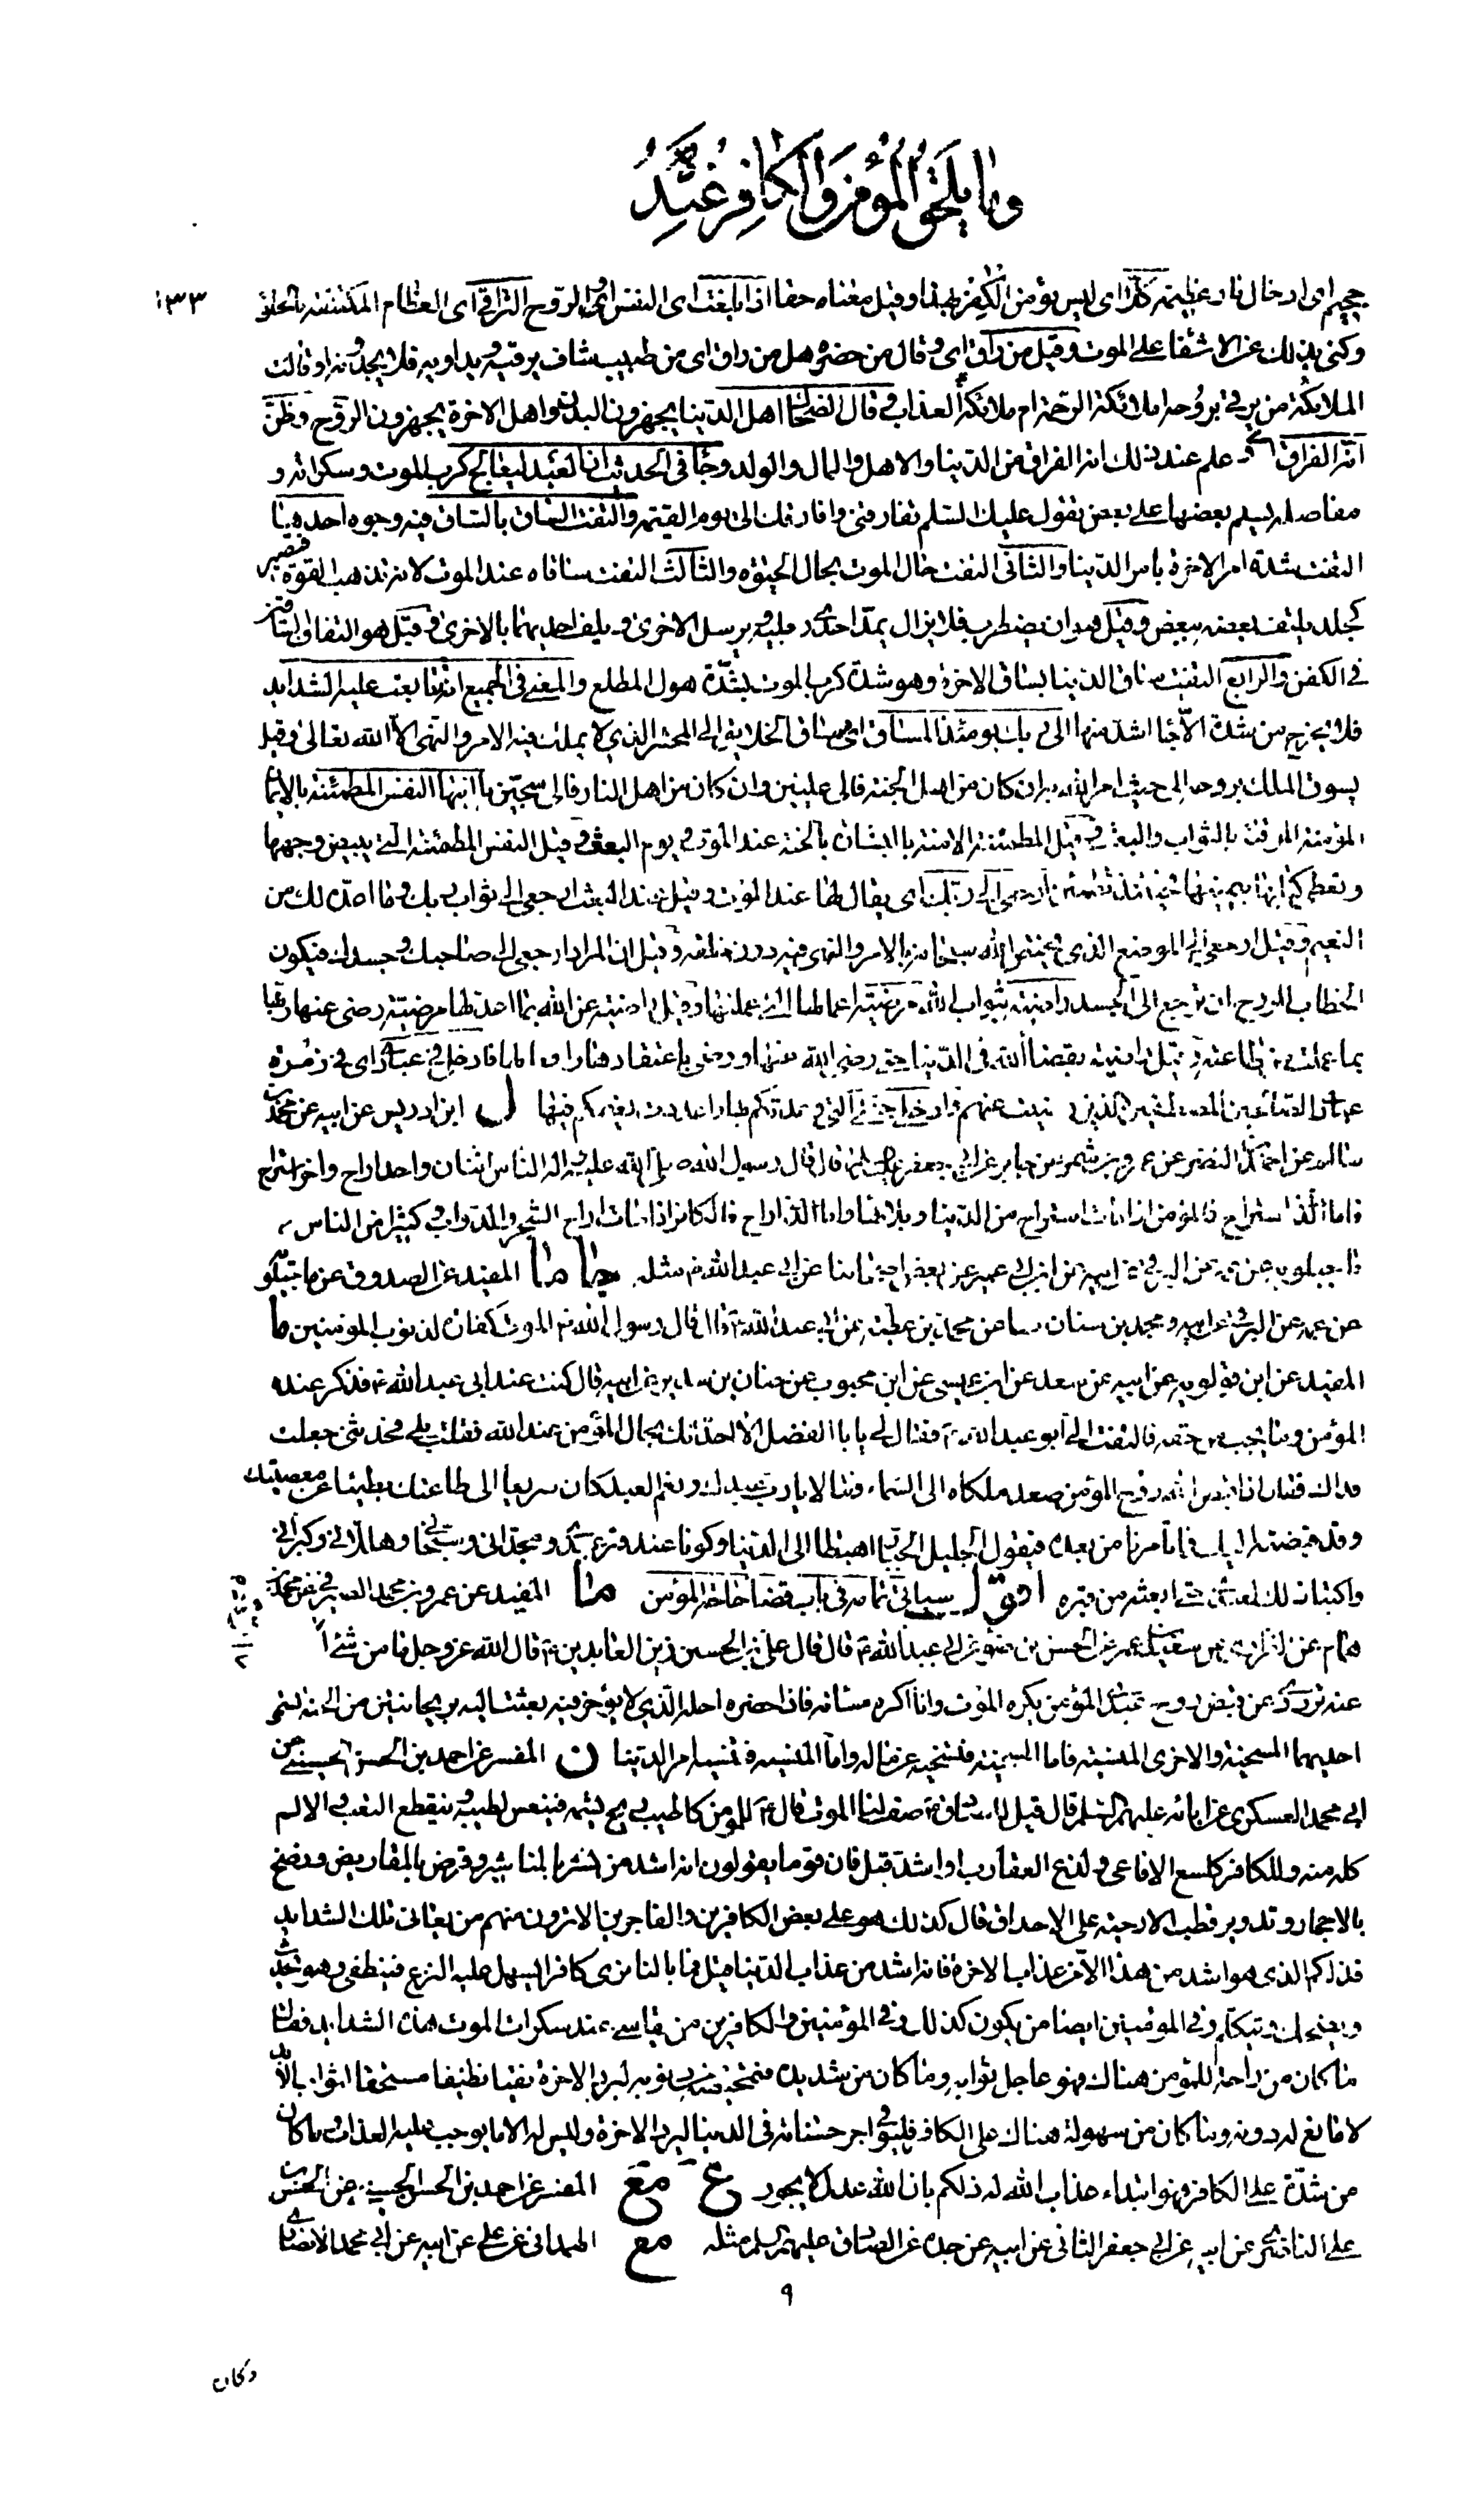 وما يلحق المؤمن والكافر عنده
جحيم اى ادخال نار عظيمة كلا اى ليس يؤمن الكافر بهذا وقيل معناه حقا اذا بلغت اى النفس او الروح التراقى اى العظام المكتنفة بالحلق
١٣٣
وكنى بذلك عن الاشفاء على الموت وقيل من راق اى وقال من حضره هل من راق اى من طبيب شاف يرقيه ويداويه فلا يجدونه او قالت
الملائكة من يرقى بروحه املائكة الرحمة ام ملائكة العذاب وقال الضحاك اهل الدنيا يجهزون البدن واهل الاخرة يجهزون الروح وظن
انه الفراق اى وعلم عند ذلك انه الفراق من الدنيا والاهل والمال والولد وجاء فى الحديث ان العبد ليعالج كرب الموت وسكراته و
مفاصله يسلم بعضها على بعض يقول عليك السلم تفارقنى وافارقك الى يوم القيمة والتفت الساق بالساق فيه وجوه احدها
التفت شدة امر الاخرة بامر الدنيا والثانى التفت حال الموت بحال الحيوة والثالث التفت ساقاه عند الموت لانه تذهب القوة فتصير
كجلد يلتف بعضه ببعض وقيل هو ان يضطرب فلا يزال يمد احدى رجليه ويرسل الاخرى ويلف احديهما بالاخرى وقيل هو التفاف الساقين
فى الكفن والرابع التفت ساق الدنيا بساق الاخرة وهو شدة كرب الموت بشدة هول المطلع والمعنى فى الجميع انه تتابعت عليه الشدايد
فلا يخرج من شدة الا جاء اشد منها الى ربك يومئذ المساق اى مساق الخلايق الى المحشر الذى لا يملك فيه الامر والنهى الا الله تعالى وقيل
يسوق الملك بروحه الى حيث امر الله به ان كان من اهل الجنة فالى عليين وان كان من اهل النار فالى سجين يا ايتها النفس المطمئنة بالايمان
المؤمنة الموقنة بالثواب والبعث وقيل المطمئنة الامنة بالبشارة بالجنة عند الموت ويوم البعث وقيل النفس المطمئنة التى يبيض وجهها
وتعطى كتابها بيمينها فحينئذ تطمئن ارجعى الى ربك اى يقال لها عند الموت وقيل عند البعث ارجعى الى ثواب ربك وما اعد لك من
النعيم وقيل ارجعى الى الموضع الذى يختص الله سبحانه بالامر والنهى فيه دون خلقه وقيل ان المراد ارجعى الى صاحبك وجسدك فيكون
الخطاب للروح ان ترجع الى الجسد راضية بثواب الله مرضية اعمالها التى عملتها وقيل راضية عن الله بما اعد لها مرضية رضى عنها ربها
بما عملت من طاعته وقيل راضية بقضاء الله فى الدنيا حتى رضى الله عنها ورضى باعتقادها وافعالها فادخلى فى عبادى اى فى زمرة
عبادى الصالحين المصطفين الذين رضيت عنهم وادخلى جنتى التى وعدتكم بها واعددت نعيمكم فيها ل ابن ادريس عن ابيه عن محمد بن
سالم عن احمد بن النضر عن عمرو بن شمر عن جابر عن ابى جعفر عليه السلم قال قال رسول الله صلى الله عليه واله الناس اثنان واحد اراح واخر استراح
فاما الذى استراح فالمؤمن اذا مات استراح من الدنيا وبلائها واما الذى اراح فالكافر اذا مات اراح الشجر والدواب وكثيرا من الناس
ماجيلويه عن عمه عن البرقى عن ابيه عن ابن ابى عمير عن بعض اصحابنا عن ابى عبد الله ع مثله جا ما المفيد عن الصدوق عن ماجيلويه
عن عمه عن البرقى عن ابيه ومحمد بن سنان معا عن محمد بن عطية عن ابى عبد الله ع قال قال رسول الله ص الموت كفارة لذنوب المؤمنين ما
المفيد عن ابن قولويه عن ابيه عن سعد عن ابن عيسى عن ابن محبوب عن حنان بن سدير عن ابيه قال كنت عند ابى عبد الله ع فذكر عنده
المؤمن وما يجب من حقه فالتفت الى ابو عبد الله ع فقال لى يا ابا الفضل الا احدثك بحال المؤمن عند الله فقلت بلى فحدثنى جعلت
فداك فقال اذا قبض الله روح المؤمن صعد ملكاه الى السماء فقالا يا رب عبدك ونعم العبد كان سريعا الى طاعتك بطيئا عن معصيتك
وقد قبضته اليك فما تامرنا من بعده فيقول الجليل الجبار اهبطا الى الدنيا وكونا عند قبر عبدى ومجدانى وسبحانى وهللانى وكبرانى
واكتبا ذلك لعبدى حتى ابعثه من قبره اقول سيأتى تمامه فى باب قضاء حاجة المؤمن ما المفيد عن عمرو بن محمد الصيرفى عن محمد بن
همام عن الفزارى عن سعيد بن عمر عن الحسن بن ضوء عن ابى عبد الله ع قال قال على بن الحسين زين العابدين ع قال الله عز وجل ما من شئ
عنه ترددى عن قبض روح عبدى المؤمن يكره الموت وانا اكره مسائته فاذا حضره اجله الذى لا يؤخر فيه بعثت اليه بريحانتين من الجنة تسمى
احديهما المسخية والاخرى المنسية فاما المسخية فتسخيه عن ماله واما المنسية فتنسيه امر الدنيا ن المفسر عن احمد بن الحسن الحسينى عن
ابى محمد العسكرى عن ابائه عليهم السلم قال قيل للصادق ع صف لنا الموت قال ع للمؤمن كاطيب ريح يشمه فينعس لطيبه وينقطع التعب والالم
كله منه وللكافر كلسع الافاعى ولدغ العقارب او اشد قيل فان قوما يقولون انه اشد من نشر بالمناشير وقرض بالمقاريض ورضخ
بالاحجار وتدوير قطب الارحية على الاحداق قال كذلك هو على بعض الكافرين والفاجرين الا ترون منهم من يعانى تلك الشدايد
فذلكم الذى هو اشد من هذا الا من عذاب الاخرة فانه اشد من عذاب الدنيا قيل فما بالنا نرى كافرا يسهل عليه النزع فينطفى وهو يحدث
ويضحك ويتكلم وفى المؤمنين ايضا من يكون كذلك وفى المؤمنين والكافرين من يقاسى عند سكرات الموت هذه الشدايد فقال
ما كان من راحة للمؤمن هناك فهو عاجل ثوابه وما كان من شديدة فتمحيصه من ذنوبه ليرد الاخرة نقيا نظيفا مستحقا لثواب الابد
لا مانع له دونه وما كان من سهولة هناك على الكافر فليوفى اجر حسناته فى الدنيا ليرد الاخرة وليس له الا ما يوجب عليه العذاب وما كان
من شدة على الكافر فهو ابتداء عذاب الله له ذلكم بان الله عدل لا يجور ع مع المفسر عن احمد بن الحسن الحسينى عن الحسن بن
على الناصرى عن ابيه عن ابى جعفر الثانى عن ابيه عن جده عن الصادق عليهم السلم مثله مع الهمدانى عن على عن ابيه عن ابى محمد الانصارى
٩
وكان